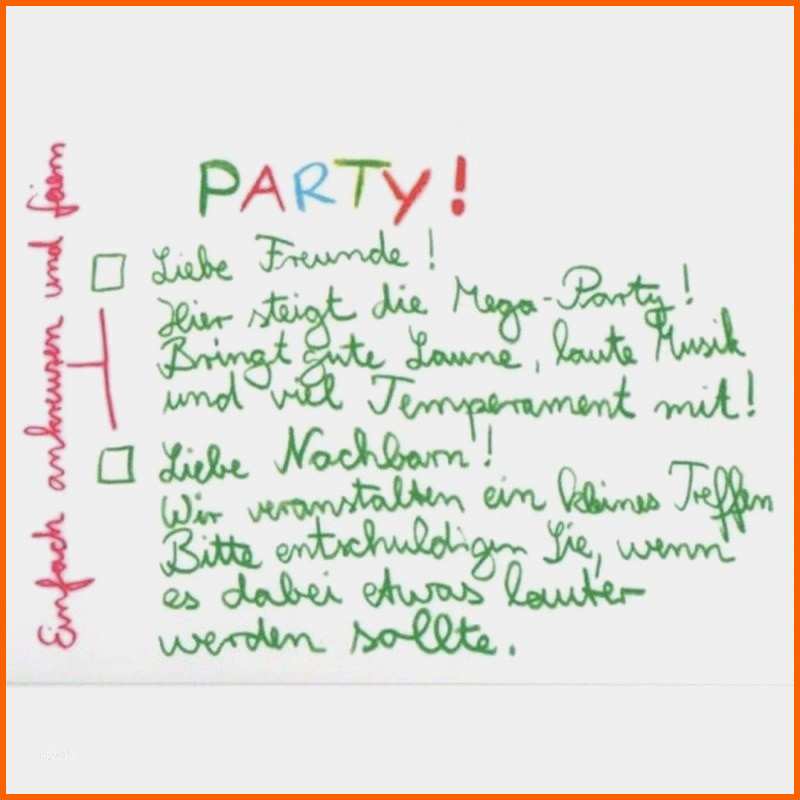 PARTY!
Einfach ankreuzen und feiern
☐ Liebe Freunde!
Hier steigt die Mega-Party!
Bringt gute Laune, laute Musik
und viel Temperament mit!
☐ Liebe Nachbarn!
Wir veranstalten ein kleines Treffen
Bitte entschuldigen Sie, wenn
es dabei etwas lauter
werden sollte.